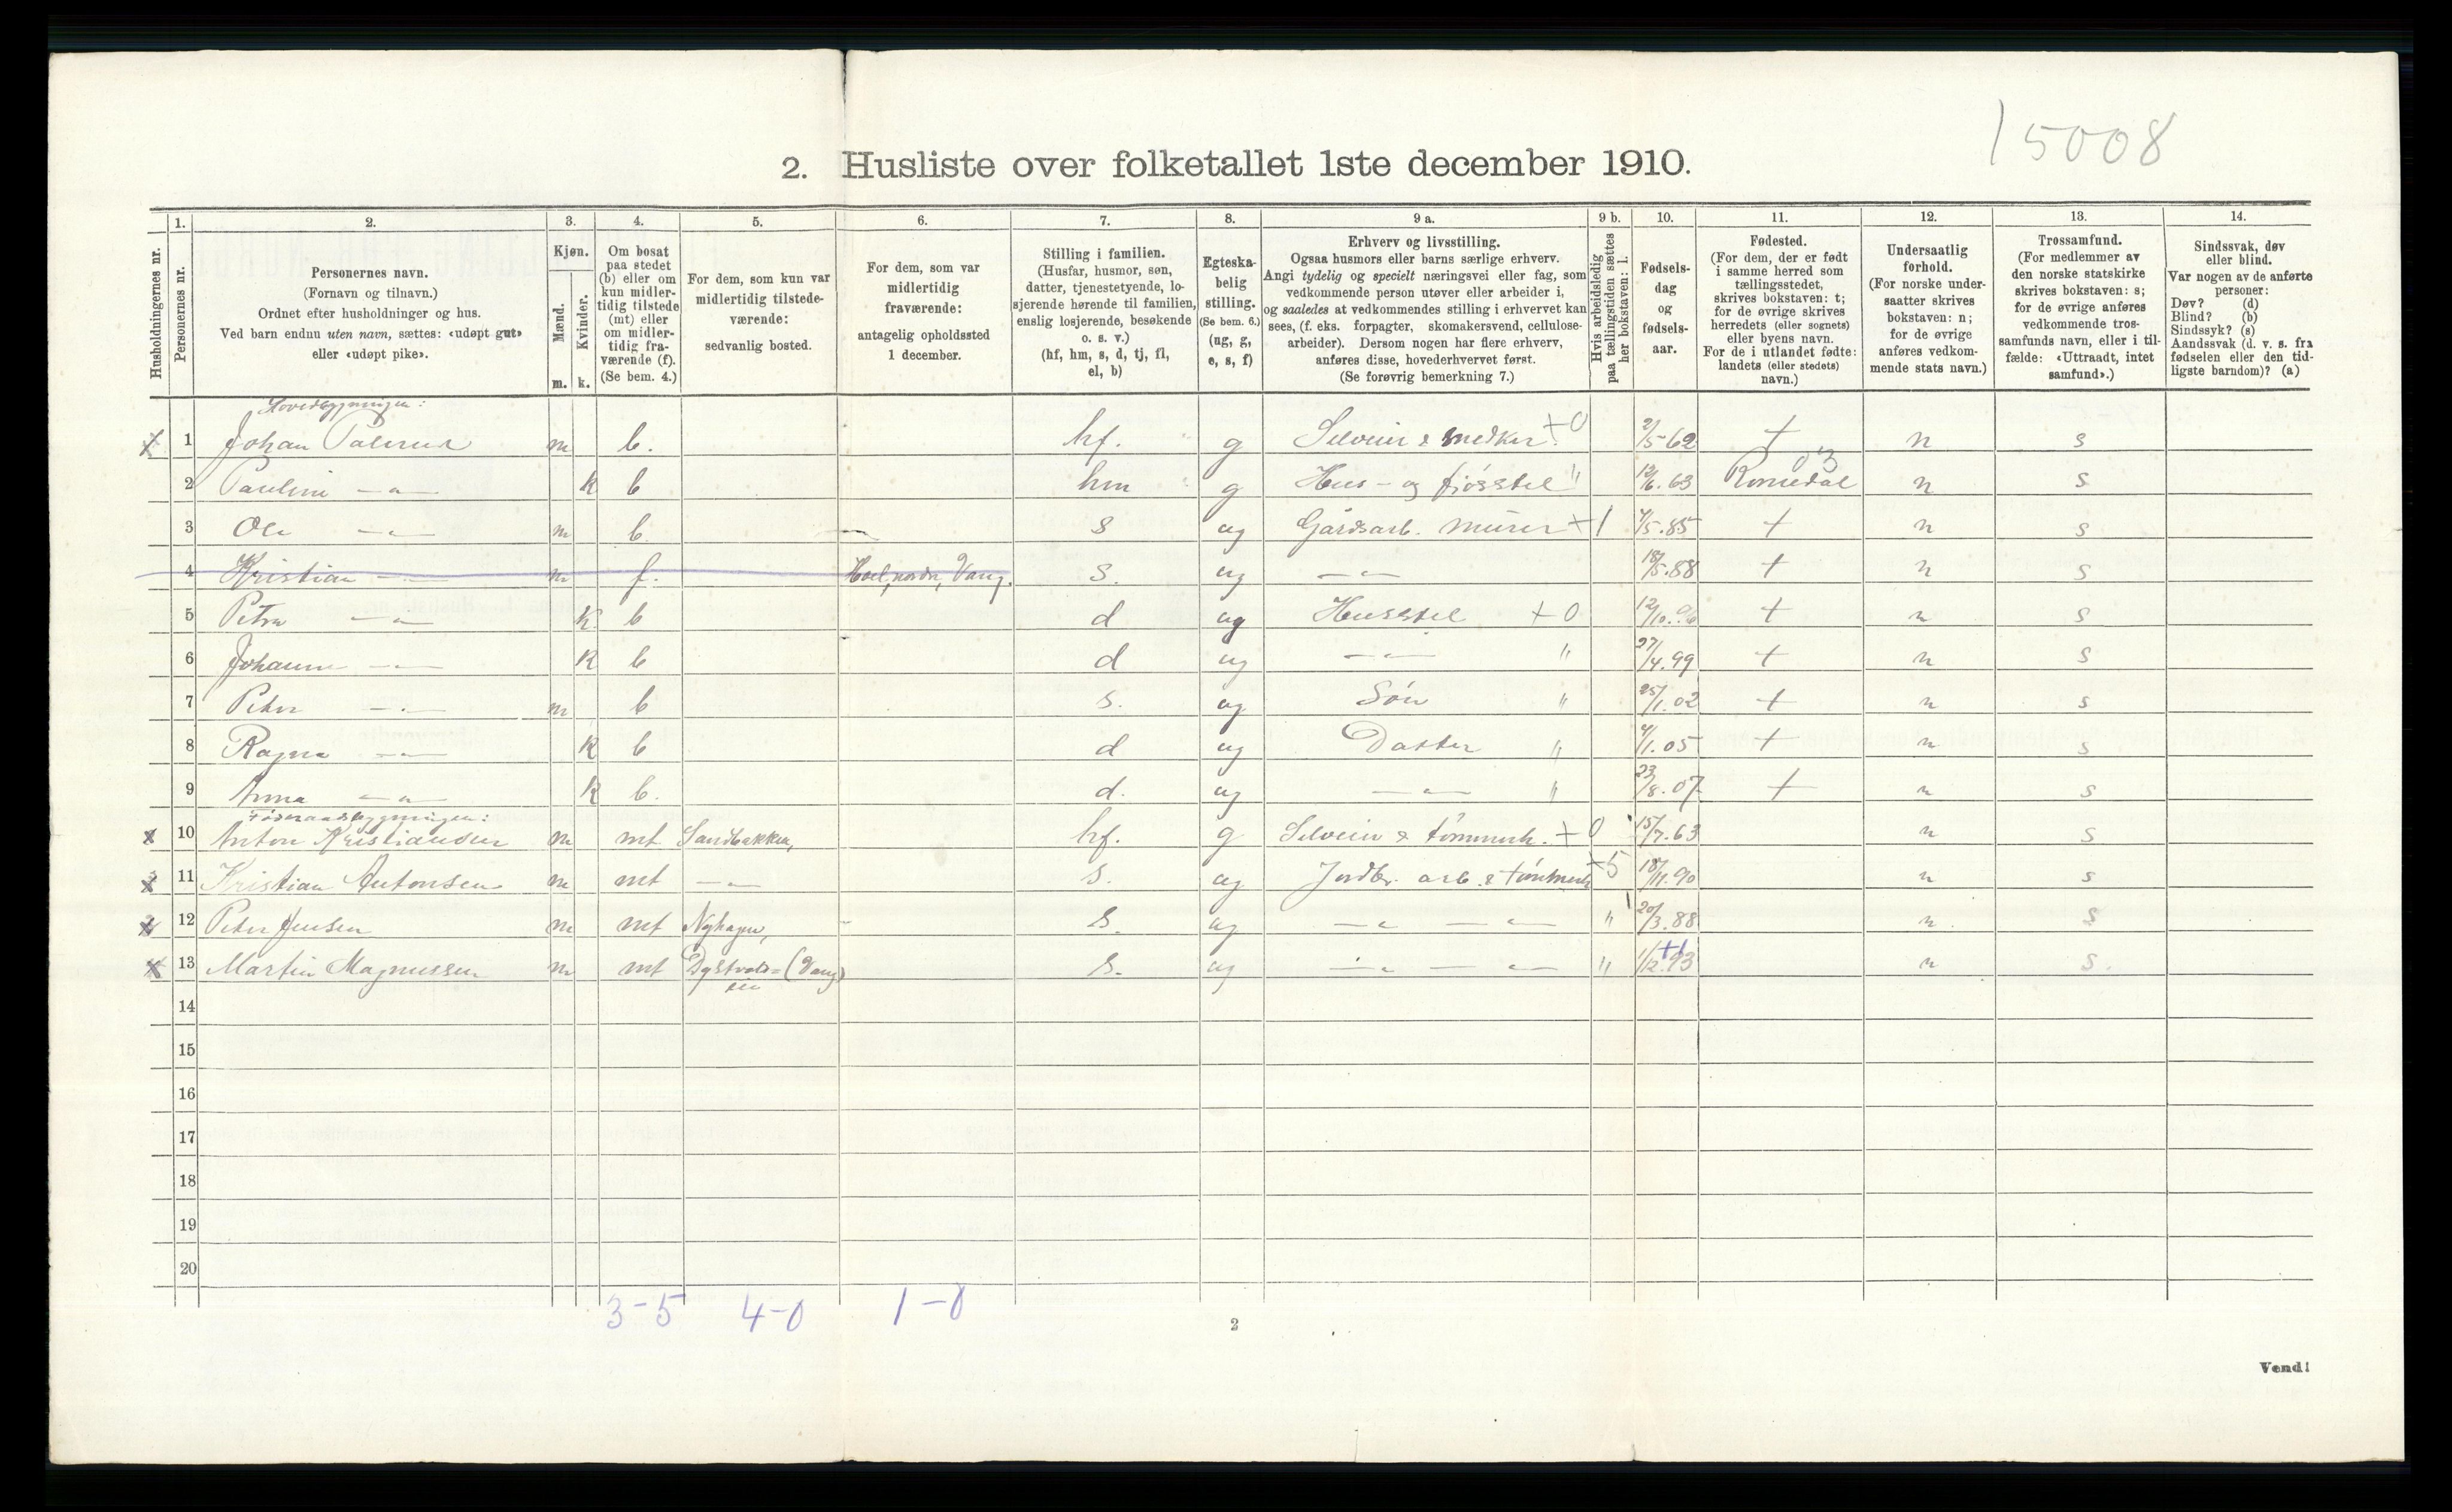 15008
2. Husliste over folketallet 1ste december 1910.
Husholdningernes nr.
1.
Personernes nr.
2.
Personernes navn.
(Fornavn og tilnavn.)
Ordnet efter husholdninger og hus.
Ved barn endnu uten navn, sættes: «udøpt gut»
eller «udøpt pike».
3.
Kjøn.
Mænd.
Kvinder.
m. k.
4.
Om bosat
paa stedet
(b) eller om
kun midler-
tidig tilstede
(mt) eller
om midler-
tidig fra-
værende (f).
(Se bem. 4.)
5.
For dem, som kun var
midlertidig tilstede-
værende:
sedvanlig bosted.
6.
For dem, som var
midlertidig
fraværende:
antagelig opholdssted
1 december.
7.
Stilling i familien.
(Husfar, husmor, søn,
datter, tjenestetyende, lo-
sjerende hørende til familien,
enslig losjerende, besøkende
o. s. v.)
(hf, hm, s, d, tj, fl,
el, b)
8.
Egteska-
belig
stilling.
(Se bem. 6.)
(ug, g,
e, s, f)
9 a.
Erhverv og livsstilling.
Ogsaa husmors eller barns særlige erhverv.
Angi tydelig og specielt næringsvei eller fag, som
vedkommende person utøver eller arbeider i,
og saaledes at vedkommendes stilling i erhvervet kan
sees, (f. eks. forpagter, skomakersvend, cellulose-
arbeider). Dersom nogen har flere erhverv,
anføres disse, hovederhvervet først.
(Se forøvrig bemerkning 7.)
9 b.
Hvis arbeidsledig
paa tællingstiden sættes
her bokstaven: l.
10.
Fødsels-
dag
og
fødsels-
aar.
11.
Fødested.
(For dem, der er født
i samme herred som
tællingsstedet,
skrives bokstaven: t;
for de øvrige skrives
herredets (eller sognets)
eller byens navn.
For de i utlandet fødte:
landets (eller stedets)
navn.)
12.
Undersaatlig
forhold.
(For norske under-
saatter skrives
bokstaven: n;
for de øvrige
anføres vedkom-
mende stats navn.)
13.
Trossamfund.
(For medlemmer av
den norske statskirke
skrives bokstaven: s;
for de øvrige anføres
vedkommende tros-
samfunds navn, eller i til-
fælde: «Uttraadt, intet
samfund».)
14.
Sindssvak, døv
eller blind.
Var nogen av de anførte
personer:
Døv? (d)
Blind? (b)
Sindssyk? (s)
Aandssvak (d. v. s. fra
fødselen eller den tid-
ligste barndom)? (a)
Hovedbygningen:
x 1 Johan m b. hf. g Selveier & +0 2/5-62 t n s
2 Pauline —"— k b hm g Hus- og fjøsstel " 12/6.63 Romedal 03 n s
3 Ole —"— m b. s ug Gårdsarb. murer +1 4/5.85 t n s
4 Kristian —"— m f. Hoel, nordre, Vang. s. ug —"— 18/5.88 t n s
5 Petra —"— k b d ug Husstel +0 12/10.96 t n s
6 Johanne —"— k b d ug —"— " 27/4.99 t n s
7 Peter —"— m b s. ug Søn " 25/1.02 t n s
8 Ragna —"— k b d ug Datter " 4/1.05 t n s
9 Anna —"— k b. d. ug —"— " 23/8.07 t n s
Föderaadsbygningen:
x 10 Anton Kristiansen m mt Sandbakken, hf. g Selveier & tømmerh. +0 15/7.63 n s
x 11 Kristian Antonsen m mt —"— s. ug Jordbr. arb. & tømmerh +5 18/11.90 n s
x 12 Peter Jensen m mt Nyhagen, s. ug —"— —"— " 20/3.88 n s
x 13 Martin Magnussen m mt (Vang) s. ug —"— —"— " 1/12.93 n s.
14
15
16
17
18
19
20
3-5 4-0 1-0
2
Vend!